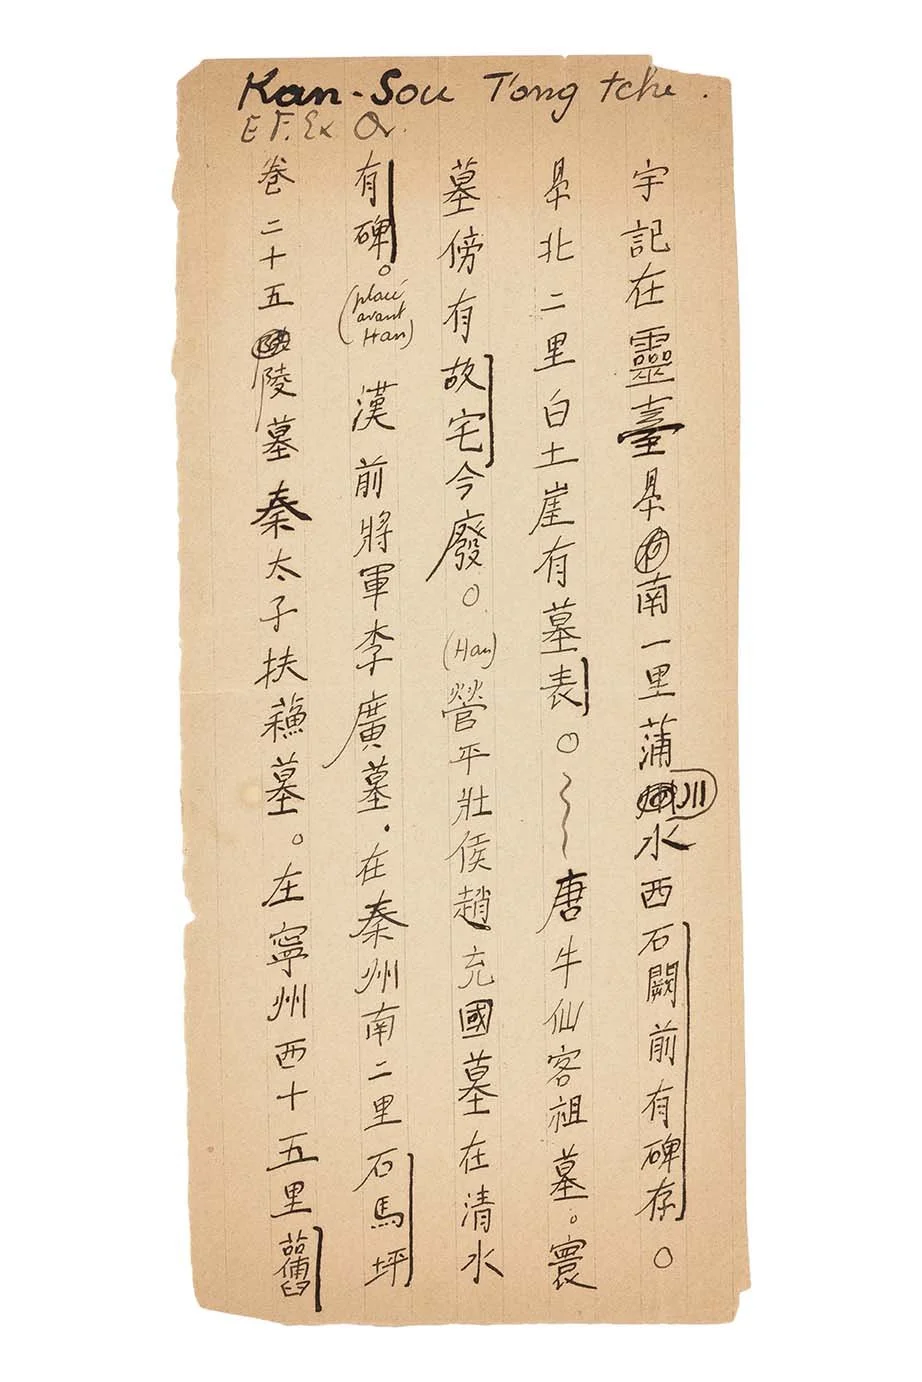 Kan-Sou T'ong tche.
E F. Ex Or.
卷二十五陵墓秦太子扶蘓墓。左寧州西十五里舊
有碑。(placé avant Han)漢前將軍李廣墓.在秦州南二里石馬坪
墓傍有故宅今廢。(Han)營平壯侯趙充國墓在清水
県北二里白土崖有墓表。唐牛仙客祖墓。寰
宇記在靈臺県南一里蒲川水西石闕前有碑存。